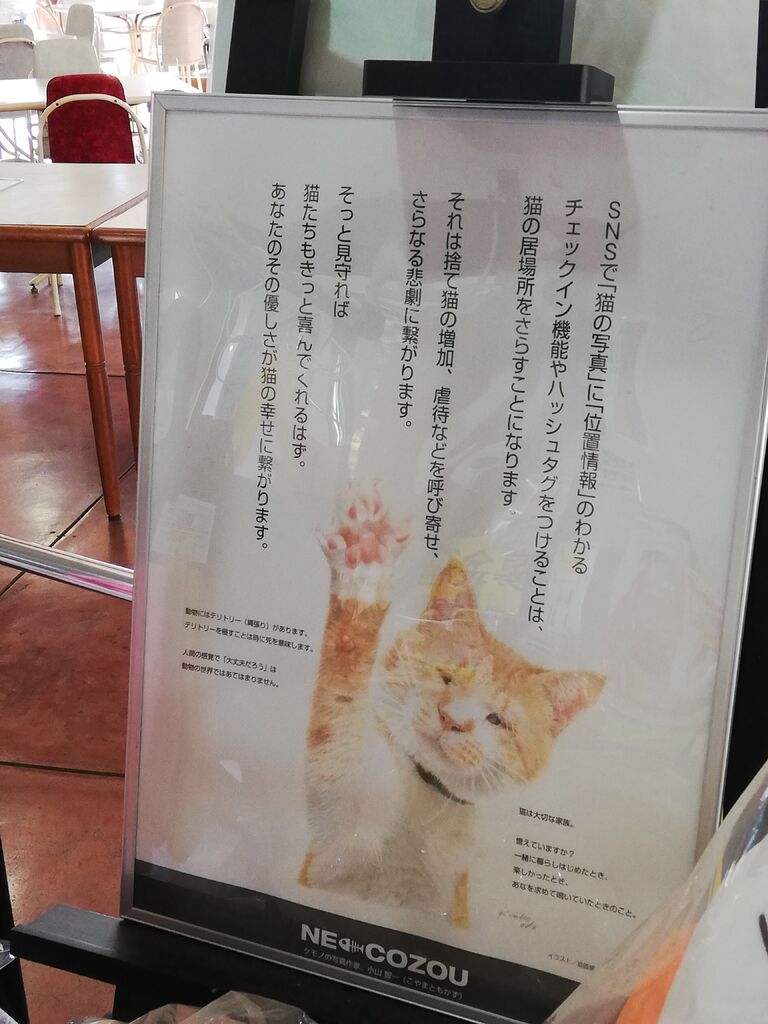 SNSで「猫の写真」に「位置情報」のわかる
チェックイン機能やハッシュタグをつけることは、
猫の居場所をさらすことになります。
それは捨て猫の増加、虐待などを呼び寄せ、
さらなる悲劇に繋がります。
そっと見守れば
猫たちもきっと喜んでくれるはず。
あなたのその優しさが猫の幸せに繋がります。
動物にはテリトリー（縄張り）があります。
テリトリーを侵すことは時に死を意味します。
人間の感覚で「大丈夫だろう」は
動物の世界ではあてはまりません。
猫は大切な家族。
憶えていますか？
一緒に暮らしはじめたとき、
楽しかったとき、
あなを求めて鳴いていたときのこと。
イラスト／
NE COZOU
ケモノの写真作家 小山 智一（こやまともかず）